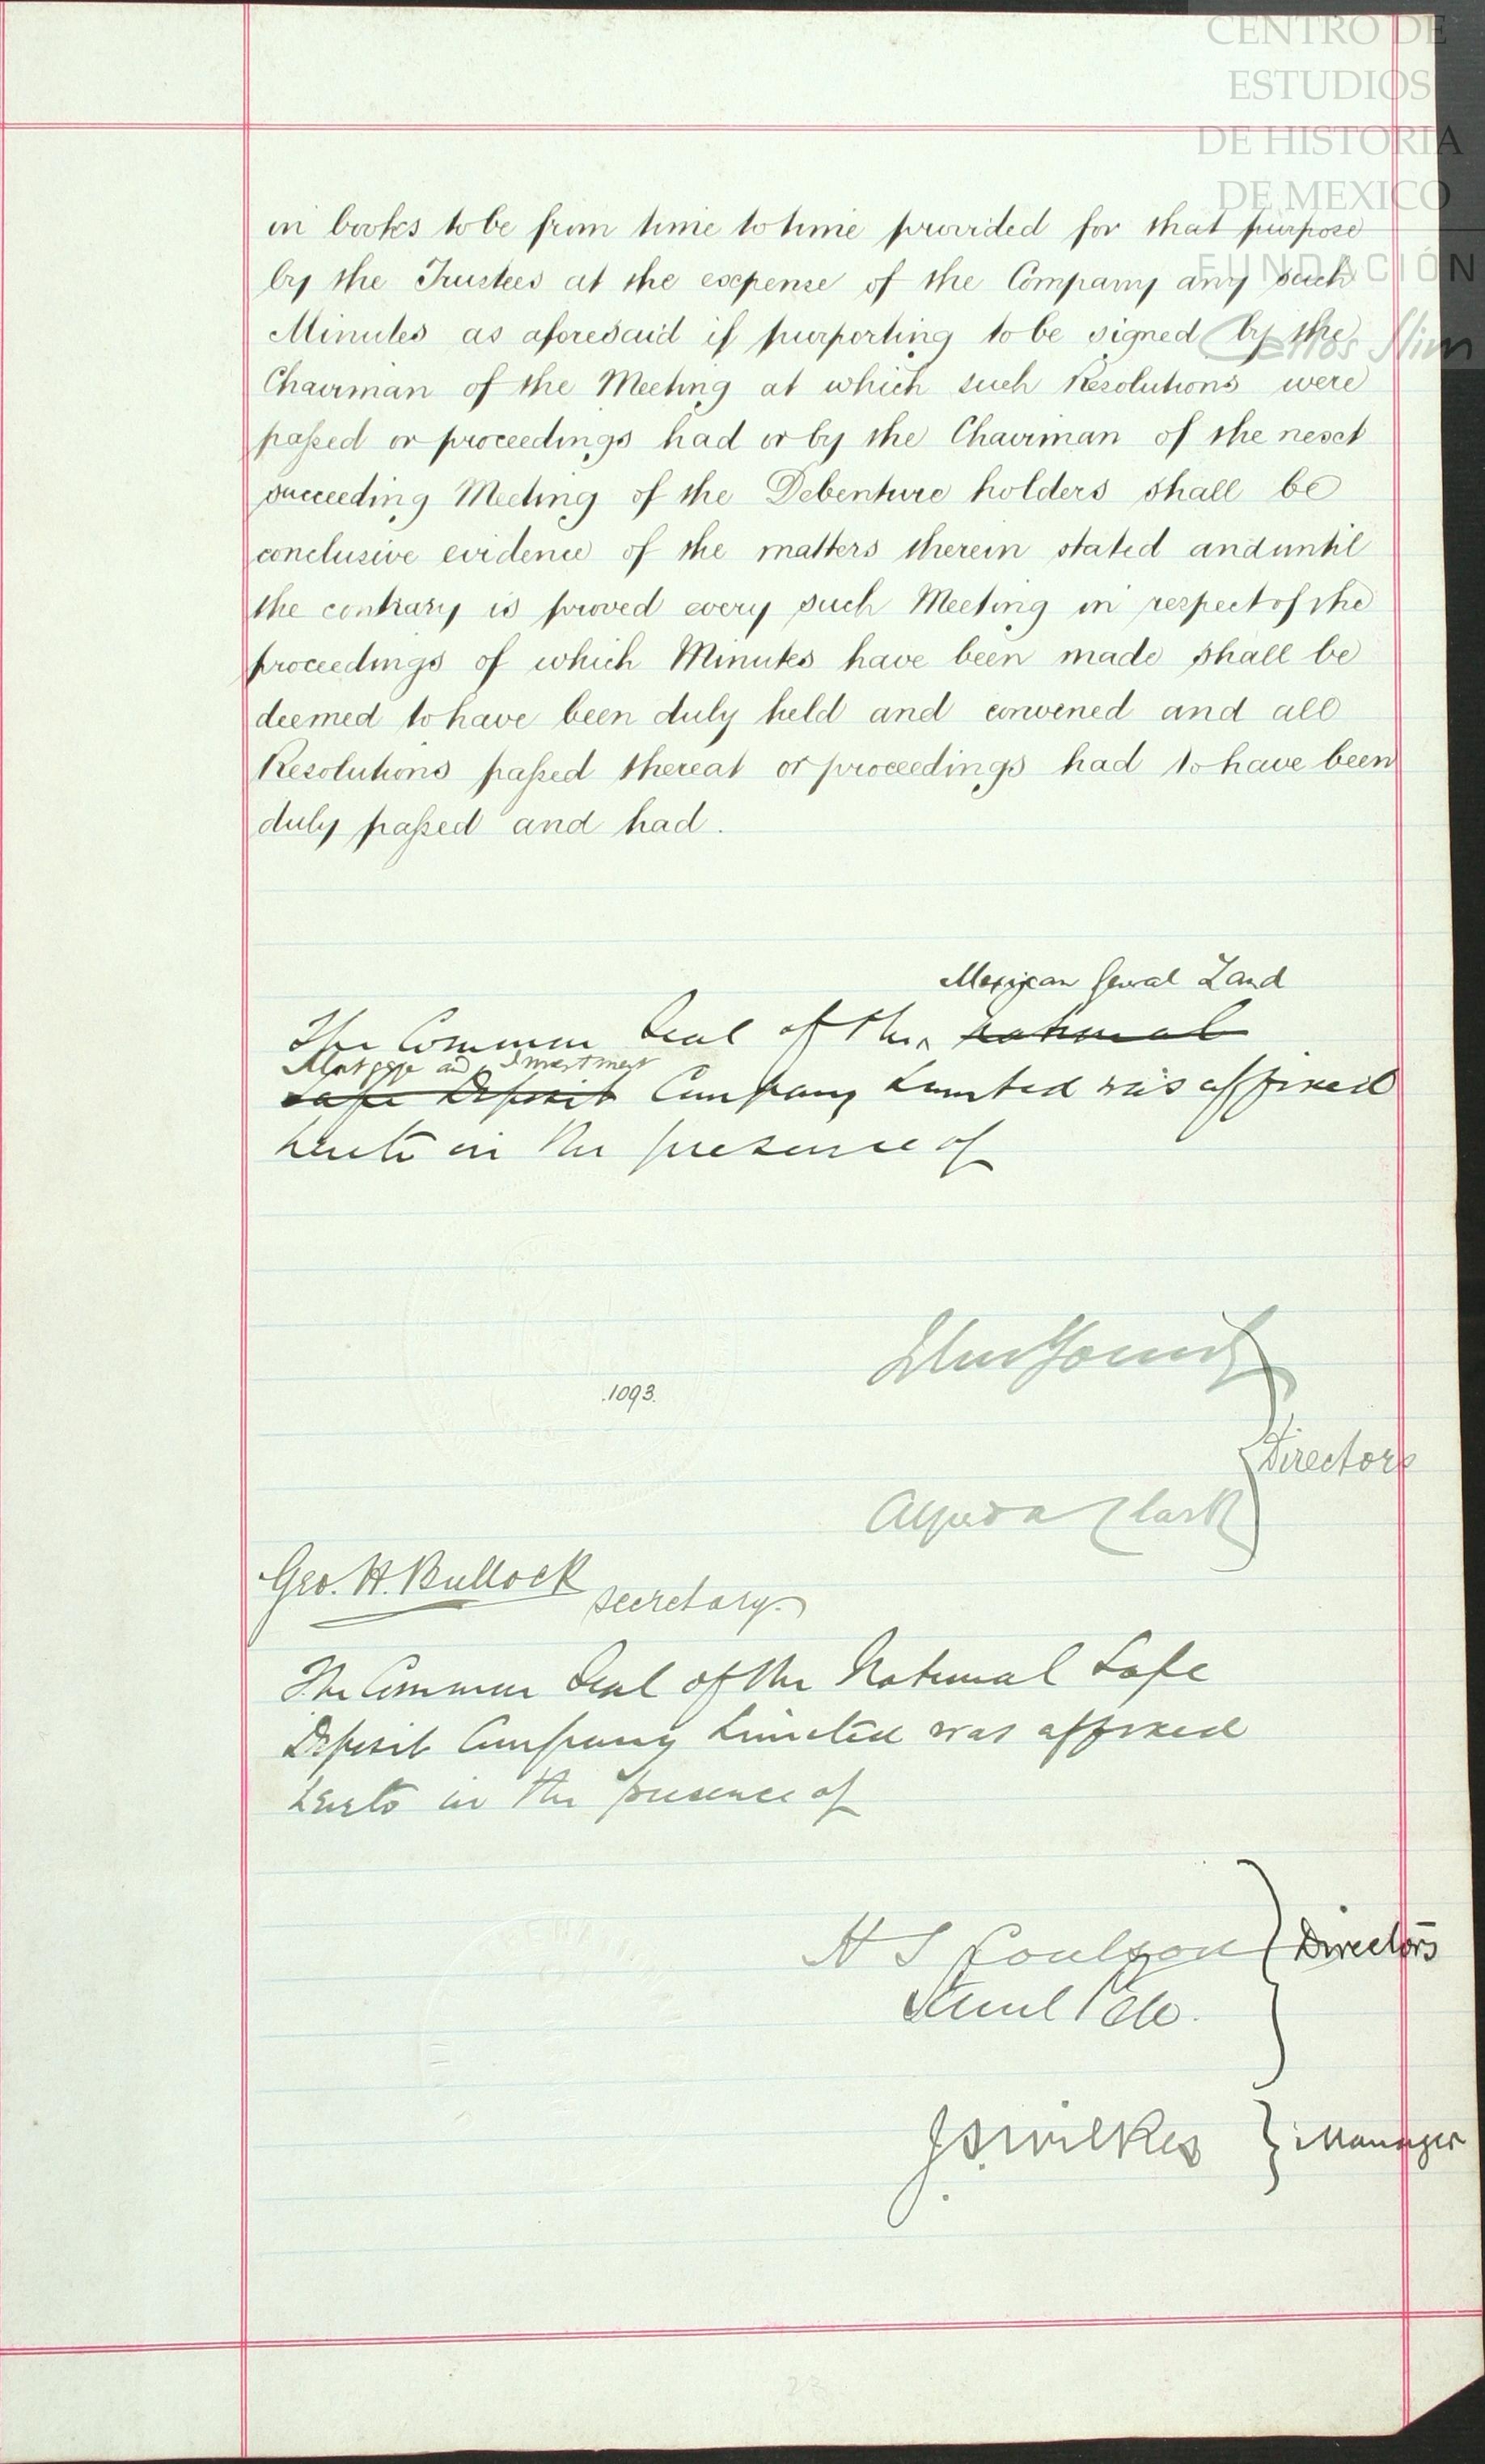 CENTRO DE
ESTUDIOS
DE HISTORIA
DE MEXICO
FUNDACIÓN
Carlos Slim
in books to be from time to time provided for that purpose
by the Trustees at the expense of the Company any such
Minutes as aforesaid if purporting to be signed by the
Chairman of the Meeting at which such Resolutions were
passed or proceedings had or by the Chairman of the next
succeeding Meeting of the Debenture holders shall be
conclusive evidence of the matters therein stated and until
the contrary is proved every such Meeting in respect of the
proceedings of which Minutes have been made shall be
deemed to have been duly held and convened and all
Resolutions passed thereat or proceedings had to have been
duly passed and had.
Mexican General Land
The Common Seal of the National
Mortgage and Investment
Safe Deposit Company Limited was affixed
hereto in the presence of
John Young
.1093.
Directors
Alfred A Clark
Geo. H. Bullock Secretary.
The Common Seal of the National Safe
Deposit Company Limited was affixed
hereto in the presence of
H S Coulson Directors
J S Wilkes Manager
23